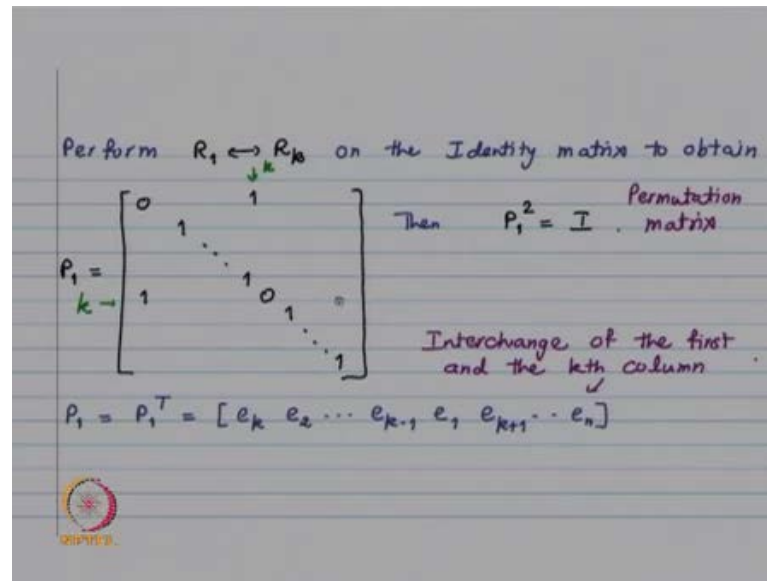 Perform R₁ ↔ Rₖ on the Identity matrix to obtain
↓ k
0 1
1
⋱
P₁ =
1
k → 1 0
1
⋱
1
Then P₁² = I . Permutation
matrix
Interchange of the first
and the kth column
P₁ = P₁ᵀ = [ eₖ e₂ ⋯ eₖ₋₁ e₁ eₖ₊₁ ⋅⋅ eₙ ]